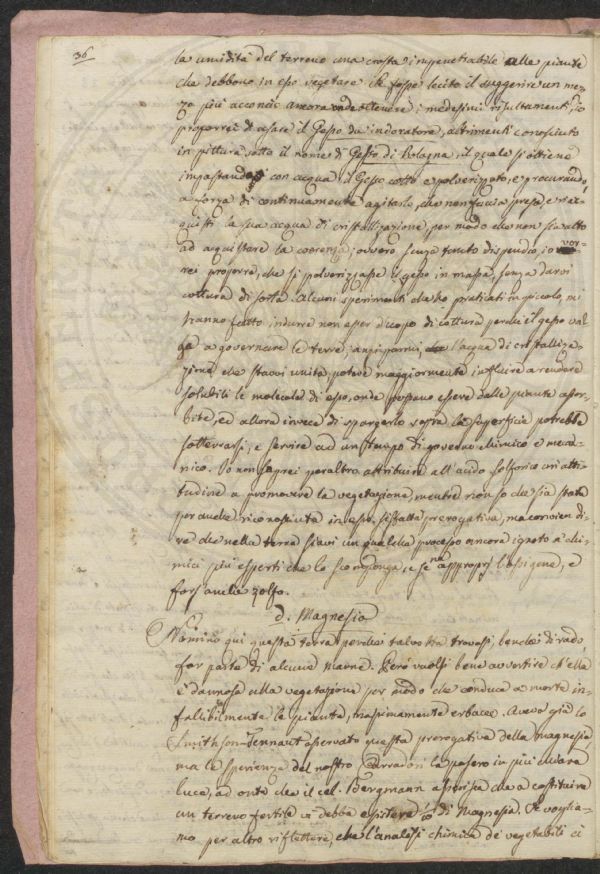 36
la umidità del terreno una crosta impenetrabile alle piante
che debbono in esso vegetare. Se fosse lecito il suggerire un mez-
zo più acconcio ancora onde ottenere i medesimi risultamenti, io
proporrei di usare il Gesso da indoratore, altrimenti conosciuto
in pittura sotto il nome di Gesso di Bologna, il quale si ottiene
impastando con acqua il Gesso cotto e polverizzato, e procurando,
a forza di continuamente agitarlo, che non faccia presa, e riac-
quisti la sua acqua di cristallizzazione, per modo che non sia atto
ad acquistare la coerenza; ovvero senza tanto dispendio, io vor-
rei proporre, che si polverizzasse il gesso in massa, senza darvi
cottura di sorta. Alcuni sperimenti da ho praticati in piccolo, mi
hanno fatto indurre non esser d'uopo di cottura perchè il gesso val-
ga a governare le terre; anzi parmi, l'acqua di cristallizza-
zione che stavvi unita potere maggiormente influire a rendere
solubili le molecole di esso, onde possano essere dalle piante assor-
bite, ed allora invece di spargerlo sopra la superficie potrebbe
sotterrarsi, e servire ad un tempo di governo chimico e mecca-
nico. Io non saprei peraltro attribuire all'acido solforico un'atti-
tudine a promovere la vegetazione, mentre non so che sia stata
per anche riconosciuta in esso siffatta prerogativa, ma convien di-
re che nella terra siavi un qualche processo ancora ignoto a' chi-
mici più esperti che lo scomponga, e se ne appropri l'ossigene, e
fors'anche zolfo.
d. Magnesia
Nomino qui questa terra perchè talvolta trovasi, benchè di rado,
far parte di alcune marne. Però vuolsi bene avvertire ch'ella
è dannosa alla vegetazione per modo che conduce a morte in-
fallibilmente le piante, massimamente erbacee. Avevo già lo
Smithson Tennant osservato questa prerogativa della magnesia,
ma le sperienze del nostro Carradori la posero in più chiara
luce, ad onta che il cel. Bergmann asserisca che a costituire
un terreno fertile vi debba esistere di Magnesia. Se voglia-
mo per altro riflettere, che l'analisi chimica de' vegetabili ci